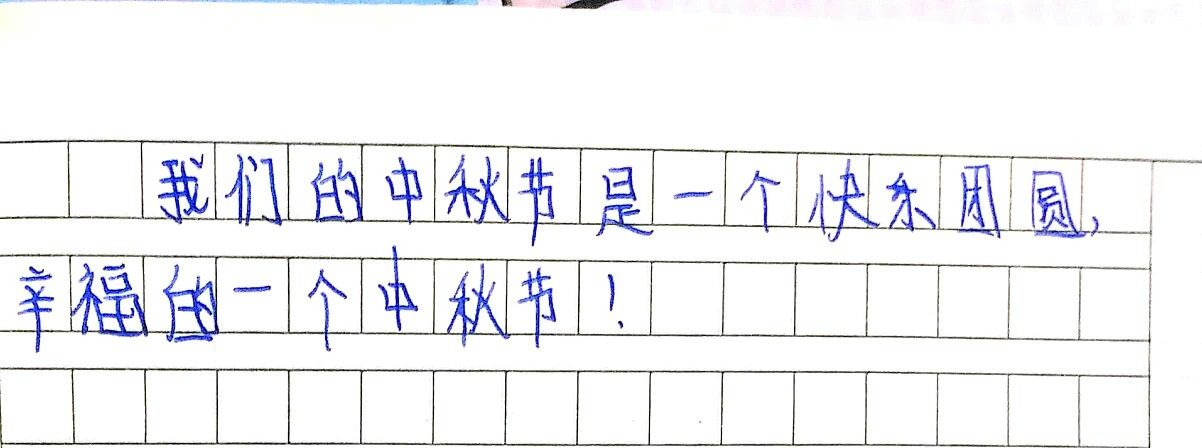 我们的中秋节是一个快乐团圆,
辛福的一个中秋节!